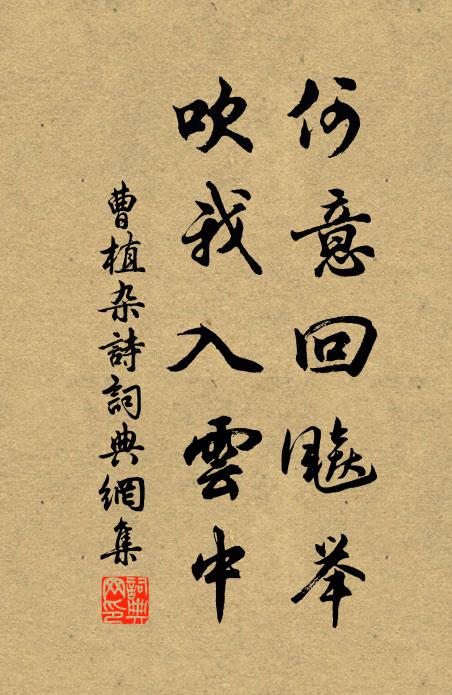 何意回飆举
吹我入雲中
曹植杂詩詞典網集
詞典
网印